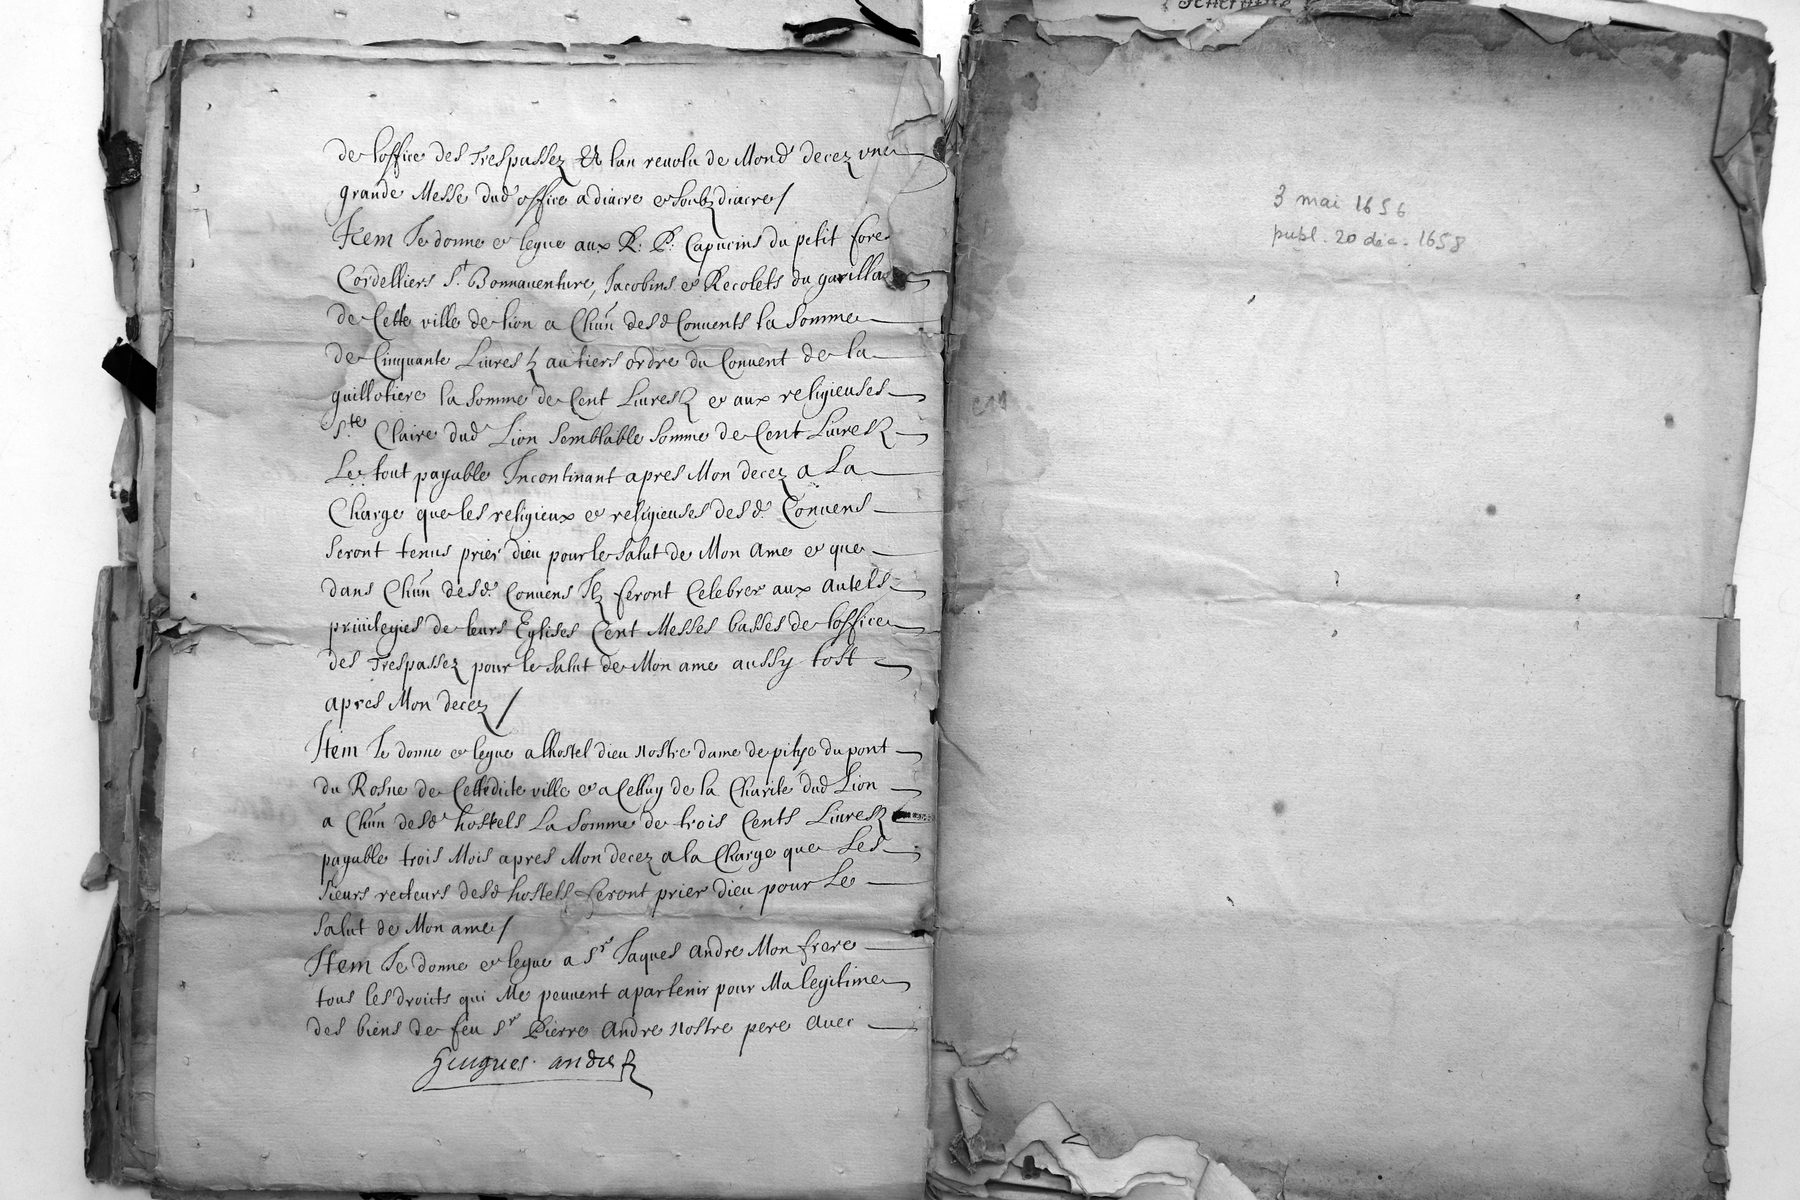 de loffice des Trespassez Et lan reuolu de Mond decez vne
grande Messe dud office a diacre e soubzdiacre /
Item Je donne e legue aux R. P. Capucins du petit fore
Cordelliers St. Bonnauenture, Jacobins e Recolets du
de Cette ville de lion a Chun desd Conuents la Somme
de Cinquante Liures au tiers ordre du Conuent de la
guillotiere la Somme de Cent Liures e aux religieuses
Ste. Claire dud Lion Semblable Somme de Cent Liures
Le tout payable Incontinant apres Mon decez a La
Charge que les religieux e religieuses desd. Conuens
Seront tenus prier dieu pour le Salut de Mon ame e que
dans Chun desd. Conuens Ilz feront Celebrer aux autels
priuilegies de leurs Eglises Cent Messes basses de loffice
des Trespassez pour le Salut de Mon ame aussy tost
apres Mon decez /
Item Je donne e legue a lhostel dieu nostre dame de pitye du pont
du Rosne de Cettedicte ville e a Celluy de la Charité dud Lion
a Chun desd hostels La Somme de trois Cents Liures
payable trois Mois apres Mon decez a la Charge que Les
Sieurs recteurs desd hostels feront prier dieu pour Le
Salut de Mon ame /
Item Je donne e legue a Sr Jaques Andre Mon frere
tous les droits qui Me peuuent apartenir pour Ma legitime
des biens de feu Sr Pierre Andre nostre pere auec
hugues andre
3 mai 1656
publ. 20 déc. 1658